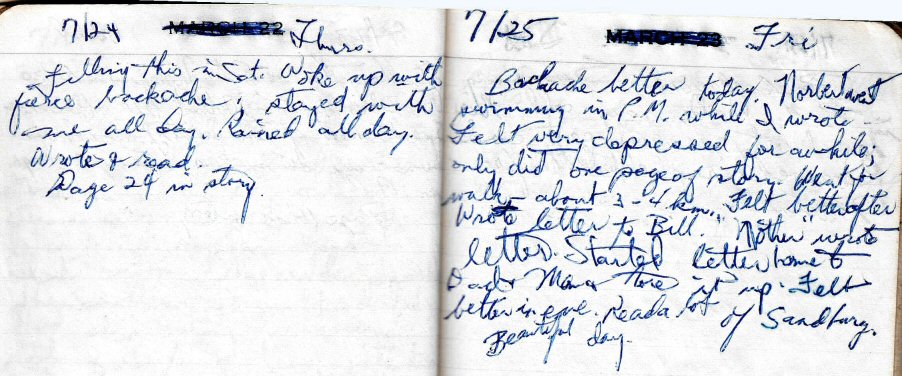 7/24 MARCH 22 Thurs.
Filling this in Sat. Woke up with
fierce backache; stayed with
me all day. Rained all day.
Wrote & read.
Page 24 in story.
7/25 MARCH 23 Fri
Backache better today. Norbert went
swimming in P.M. while I wrote.
Felt very depressed for awhile;
only did one page of story. Went for
walk - about 3-4 km. Felt better after
Wrote letter to Bill. "Mother" wrote
letter. Started letter home to
Dad & Mama tore it up. Felt
better in eve. Read a lot of Sandburg.
Beautiful day.